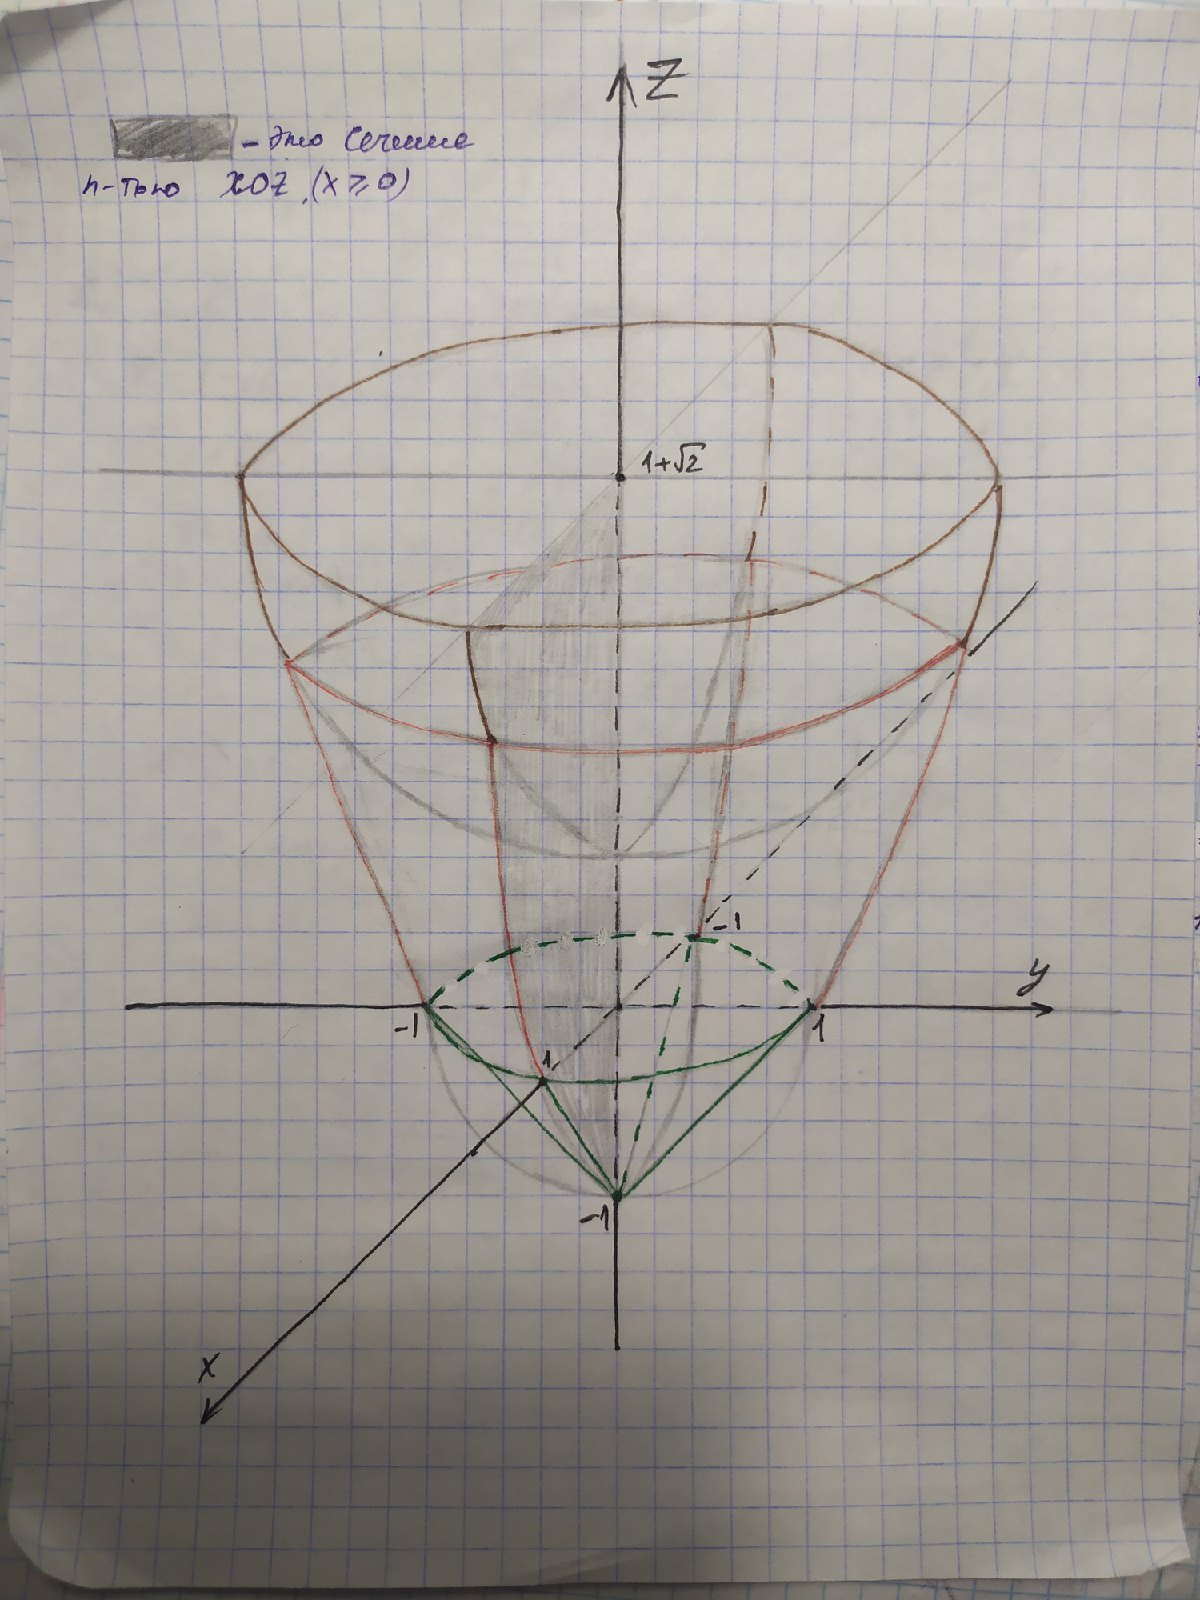 Z
- это сечение
п-тью XOZ, (x ≥ 0)
1+√2
-1
y
-1
1
1
-1
x